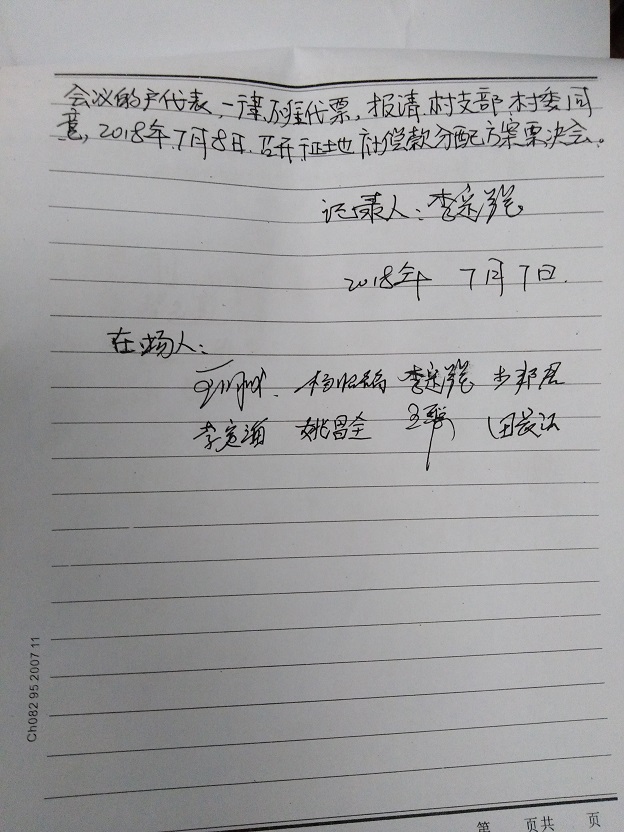 会议的户代表,一律不准代票,报请村支部村委同
意,2018年7月8日召开征地补偿款分配方案票决会。
记录人:李宗强
2018年 7月7日.
在场人:
李宗强
姚昌全
Ch082 95 2007 11
第 页共 页